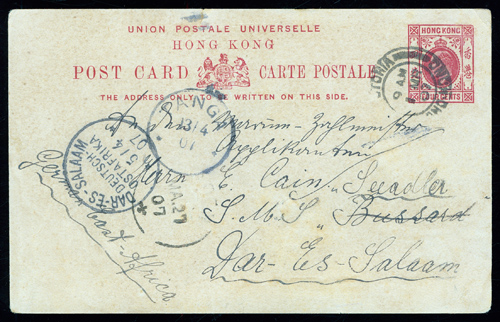 UNION POSTALE UNIVERSELLE
HONG KONG
POST CARD CARTE POSTALE
THE ADDRESS ONLY TO BE WRITTEN ON THIS SIDE.
HONG KONG
FOUR CENTS
VICTORIA
HONG KONG
13/4
07
DAR-ES-SALAAM
DEUTSCH
OSTAFRIKA
5 4
07
MA.27
07
An den Marine-Zahlmeister
Applikanten
Herrn E. Cain, Seeadler
S.M.S. Bussard
Dar-Es-Salaam
German East Africa